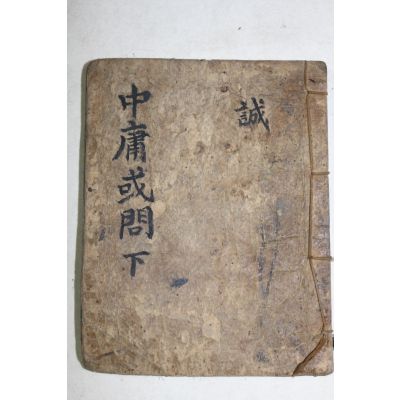 中庸或問下
誠